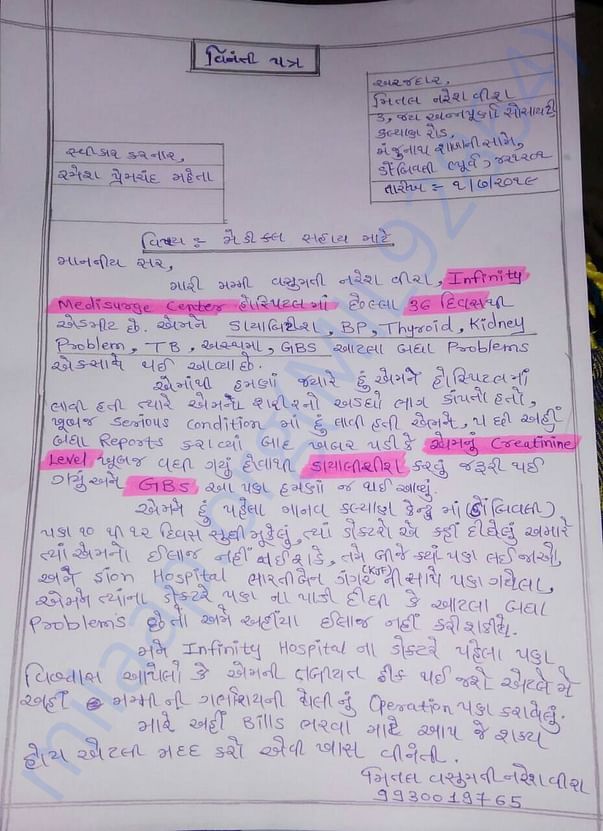 વિનંતી પત્ર
અરજદાર,
મિતલ નરેશ વીરા
૩, જય અન્નપૂર્ણા સોસાયટી
કલ્યાણ રોડ,
મંજુનાથ શાળાની સામે,
ડોંબિવલી (પૂર્વ), ૪૨૧૨૦૧
તારીખ :- ૧/૭/૨૦૧૯
સ્વીકાર કરનાર,
રમેશ પ્રેમચંદ મહેતા
વિષય :- મેડીકલ સહાય માટે
માનનીય સર,
મારી મમ્મી વસુમતી નરેશ વીરા, Infinity
Medisurge Center હોસ્પિટલમાં છેલ્લા 36 દિવસથી
એડમીટ છે. એમને ડાયાબિટીશ, BP, Thyroid, Kidney
Problem, TB, અસ્થમા, GBS આટલા બધા Problems
એકસાથે થઈ આવ્યા છે.
એમાંથી હમણાં જ્યારે હું એમને હોસ્પિટલમાં
લાવી હતી ત્યારે એમનો શરીરનો અડધો ભાગ કાંપતો હતો,
ખૂબજ Serious Condition માં હું લાવી હતી એમને, પછી અહીં
બધા Reports કરાવ્યા બાદ ખબર પડી કે એમનું Creatinine
Level ખૂબજ વધી ગયું હોવાથી ડાયાલીશીશ કરવું જરૂરી થઈ
ગયું અને GBS આ પણ હમણાં જ થઈ આવ્યું.
એમને હું પહેલા માનવ કલ્યાણ કેન્દ્ર માં (ડોંબિવલી)
પણ ૧૦ થી ૧૨ દિવસ સુધી મૂકેલું, ત્યાં ડોક્ટરો એ કહી દીધેલું અમારે
ત્યાં એમનો ઈલાજ નહીં થઈ શકે, તમે બીજે ક્યાં પણ લઈ જાઓ,
અમે Sion Hospital ભારતીબેન ડાંગર (KGF) ની સાથે પણ ગયેલા,
એમને ત્યાંના ડોક્ટરે પણ ના પાડી દીધી કે આટલા બધા
Problems છે તો અમે અહીંયા ઈલાજ નહીં કરી શકીયે.
મને Infinity Hospital ના ડોક્ટરે પહેલા પણ
વિશ્વાસ આપેલો કે એમની તબીયત ઠીક થઈ જશે એટલે મે
અહીં મમ્મી ની ગર્ભાશયની થેલી નું Operation પણ કરાવેલું.
મારે અહીં Bills ભરવા માટે આપ જે શક્ય
હોય એટલી મદદ કરો એવી ખાસ વીનંતી.
મિતલ વસુમતી નરેશ વીરા
9930019765